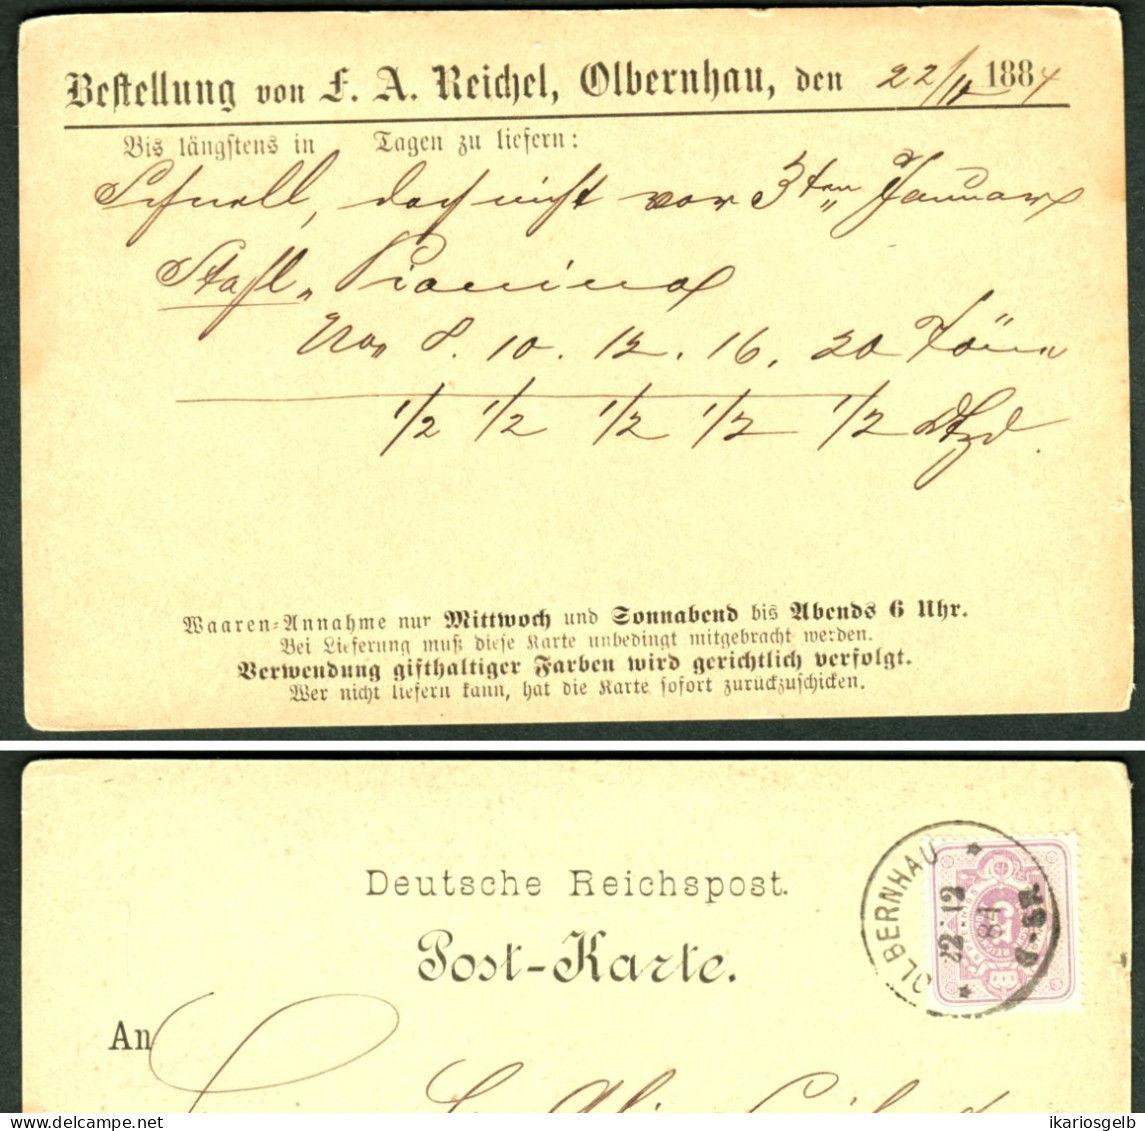 Bestellung von F. A. Reichel, Olbernhau, den 22/12 1884
Bis längstens in Tagen zu liefern:
Schnell, doch nicht vor 3ten Januar
Stahl-Pianinos
Von 8. 10. 12. 16. 20 Töne
1/2 1/2 1/2 1/2 1/2 Dtzd.
Waaren-Annahme nur Mittwoch und Sonnabend bis Abends 6 Uhr.
Bei Lieferung muß diese Karte unbedingt mitgebracht werden.
Verwendung gifthaltiger Farben wird gerichtlich verfolgt.
Wer nicht liefern kann, hat die Karte sofort zurückzuschicken.
OLBERNHAU
22 12
84
Deutsche Reichspost.
Post-Karte.
An
ikariosgelb